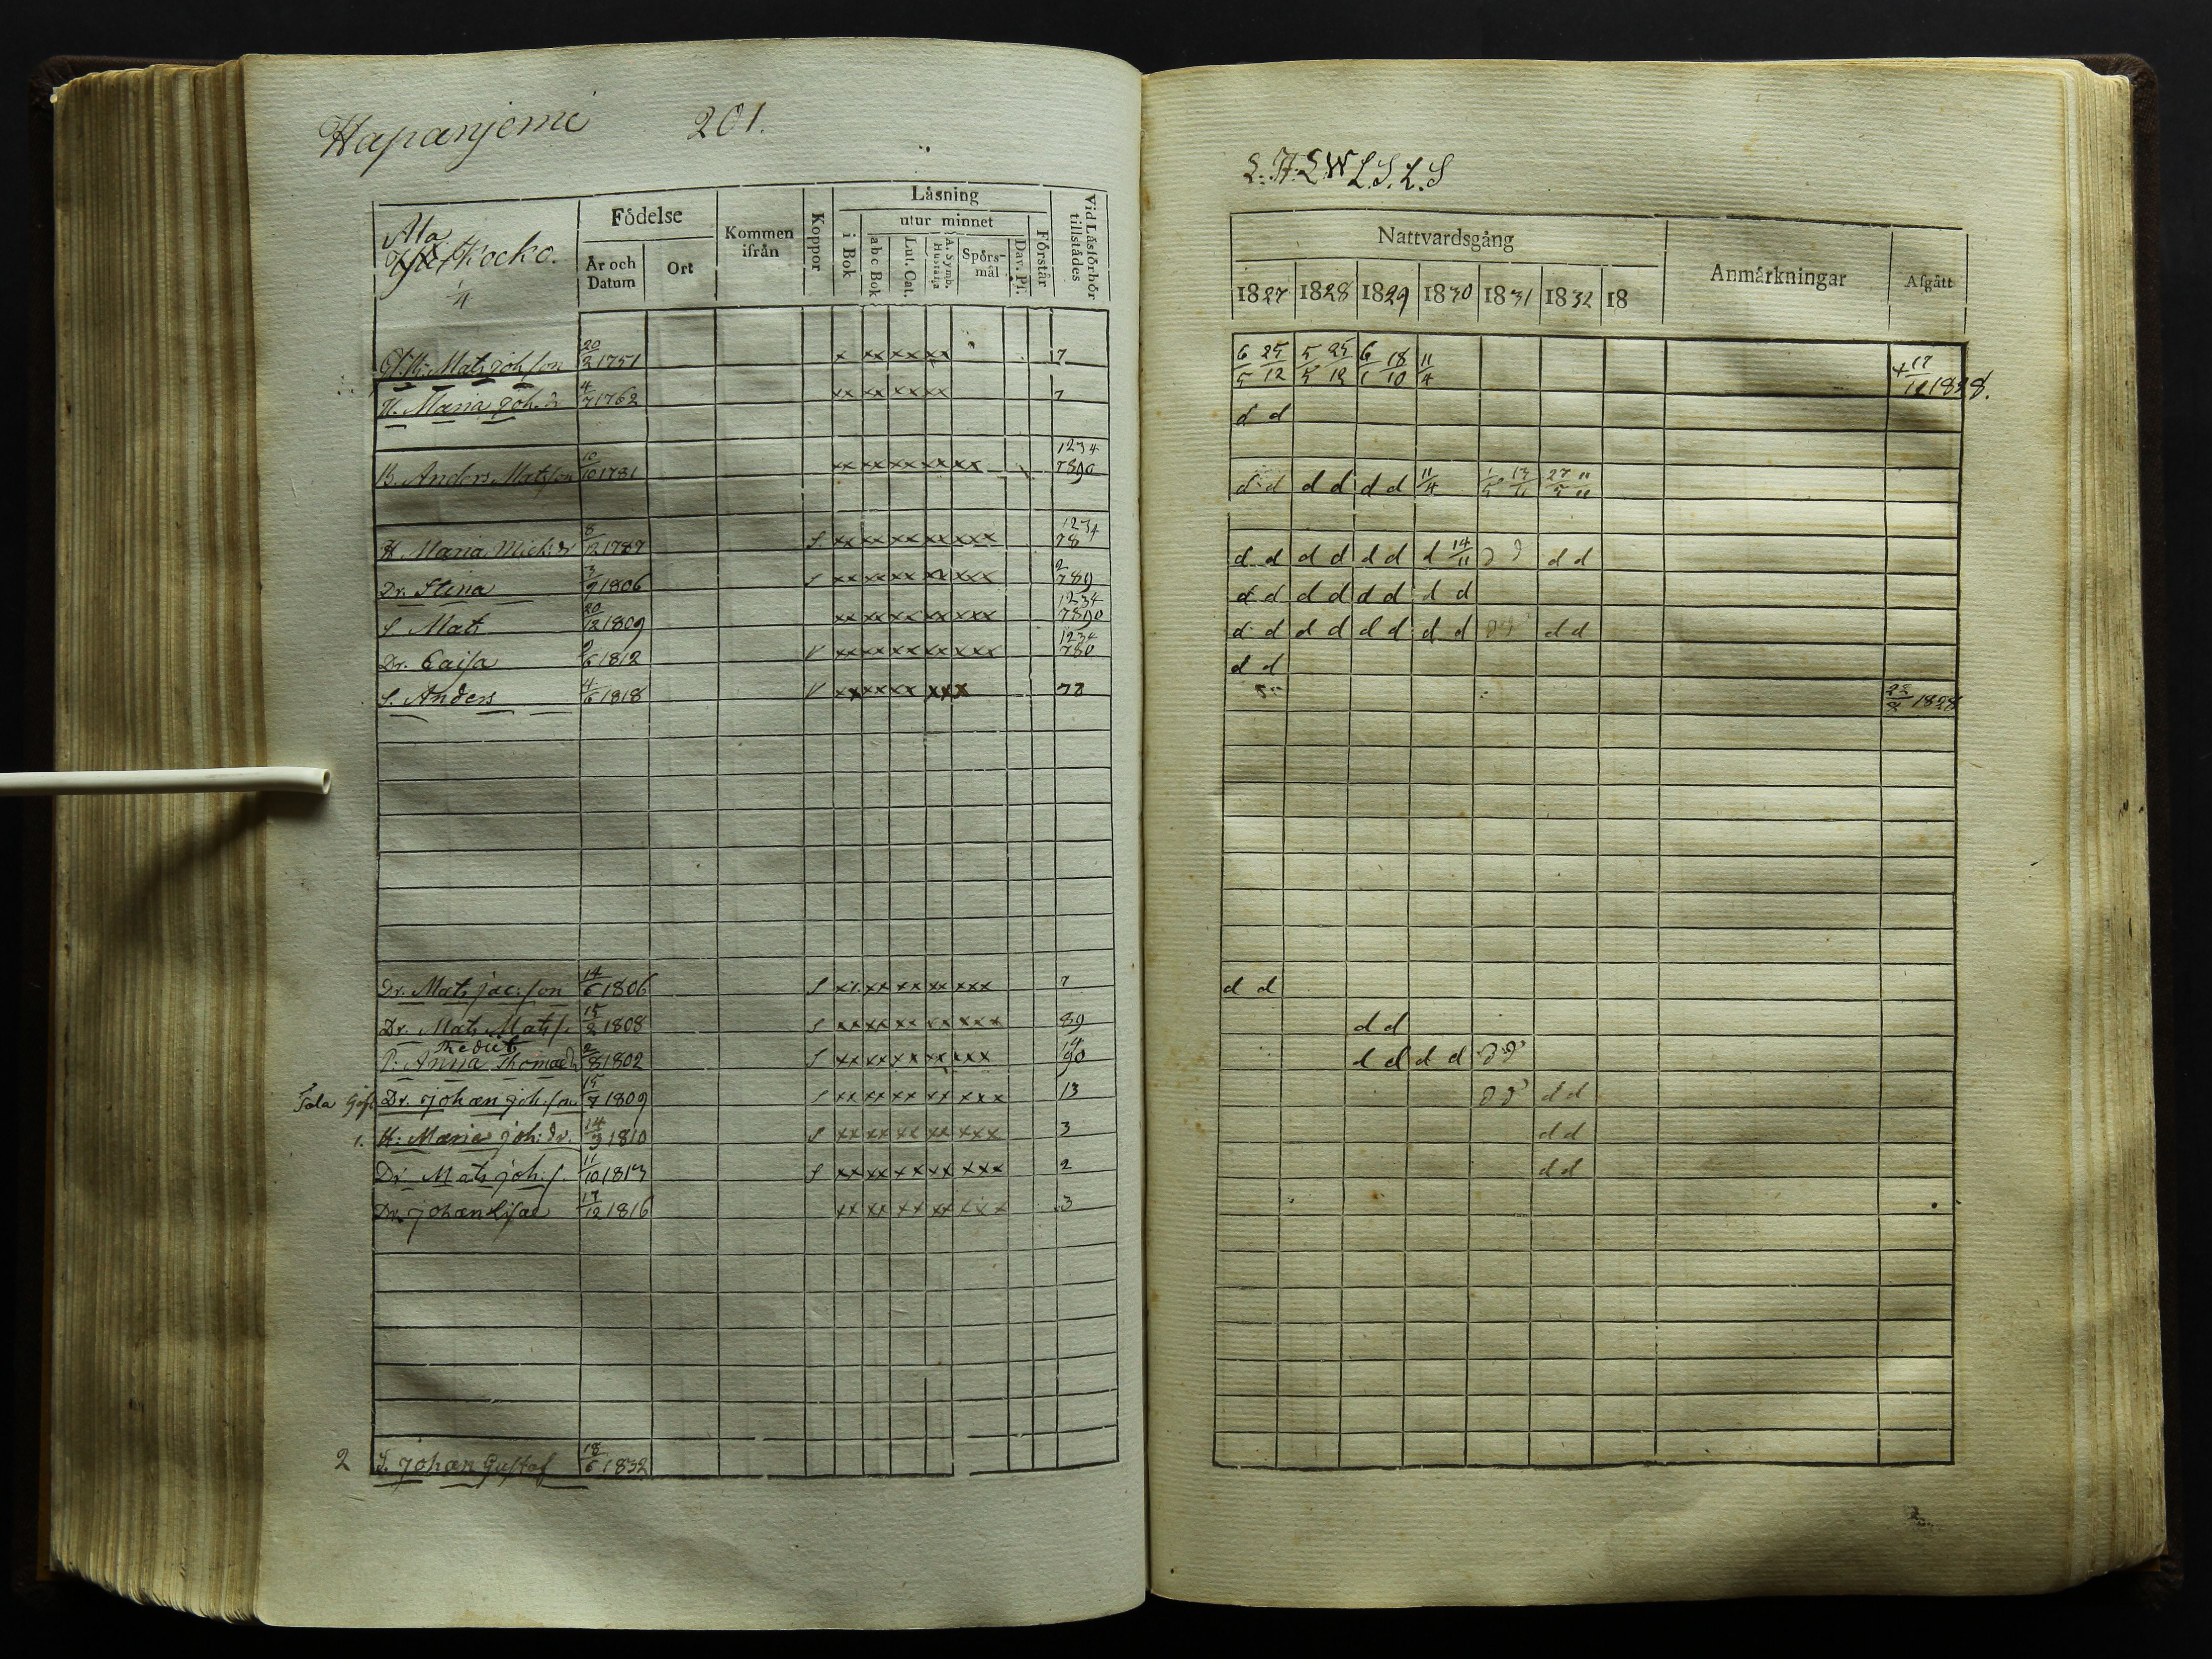 Hapanjemi 201.
Ala
Kocko.
1/4
Födelse
År och Datum
Ort
Kommen ifrån
Koppor
Läsning
i Bok
utur minnet
abc Bok
Lut. Cat.
A. Symb. Hustafla
Spörs-mål
Dav. Ps.
Förstår
Vid Läsförhör tillstådes
Mats Joh:son 20/2 1751 x xx xx xx 7
H. Maria Joh.dr 4/7 1762 xx xx xx xx 7
B. Anders Matsson 10/10 1781 xx xx xx xx xx 1234 7890
H. Maria Mich:dr 8/12 1787 S xx xx xx xx xxx 1234 78
Dr. Stina 3/9 1806 S xx xx xx xx xxx 2 789
S. Mats 20/12 1809 xx xx xx xx xxx 1234 7890
Dr. Caisa 2/6 1812 V xx xx xx xx xxx 1234 780
S. Anders 4/6 1818 V xx xx xx xxx 78
Dr. Mats Jac:son 14/6 1806 S xx xx xx xx xxx 7
Dr. Mats Mats s. 15/2 1808 S xx xx xx xx xxx 89
Hedvit
P: Anna Thomæd 2/8 1802 S xx xx xx xx xxx 14 90
Dr. Johan Joh:son 15/7 1809 S xx xx xx xx xxx 13
1. H: Maria Joh:dr. 14/9 1810 S xx xx xx xx xxx 3
Dr Mats Joh.s. 11/10 1813 S xx xx xx xx xxx 2
Dr. Johan Isac 17/12 1816 xx xx xx xx xxx 3
2 S. Johan Gustaf 18/6 1832
L. H. L W L. S. L. S
Nattvardsgång
Anmärkningar
Afgått
1827 1828 1829 1830 1831 1832 18
6/5 25/12 5/5 25/12 6/1 18/10 11/4 + 17/12 1828.
d d
d d d d d d 11/4 1/5 13/11 27/5 "/"
d d d d d d d 14/11 d d d d
d d d d d d d d
d d d d d d d d d d d d
d d
22/8 1828
d d
d d
d d d d d d
d d d d
d d
d d